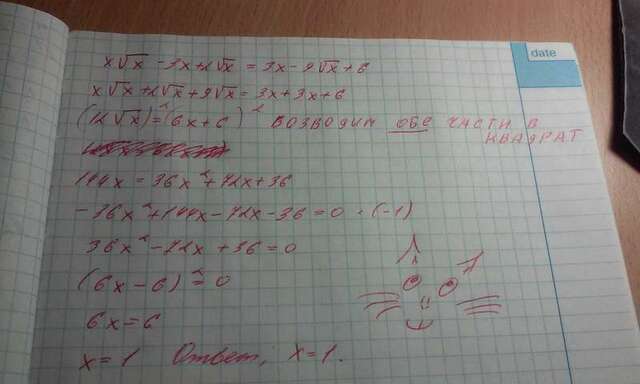 date
x√x - 3x + 2√x = 3x - 9√x + 6
x√x + 2√x + 9√x = 3x + 3x + 6
(12√x)² = (6x + 6)² ВОЗВОДИМ ОБЕ ЧАСТИ В
КВАДРАТ
144x = 36x² + 72x + 36
-36x² + 144x - 72x - 36 = 0 · (-1)
36x² - 72x + 36 = 0
(6x - 6)² = 0
6x = 6
x = 1 Ответ, x = 1.